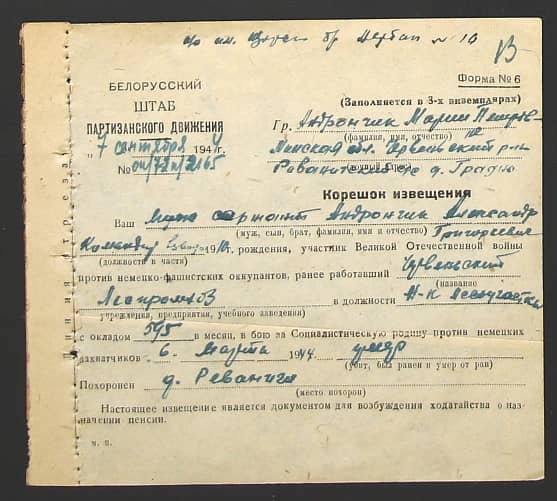 бр. № 10
БЕЛОРУССКИЙ
ШТАБ
ПАРТИЗАНСКОГО ДВИЖЕНИЯ
„7 сентября 1944
№ 04/72п/2165
Форма № 6
(Заполняется в 3-х экземплярах)
Гр. Андрончик Марии Петров-
(фамилия, имя, отчество)
Минская обл. Червеньский р-н
д.
Корешок извещения
Ваш муж сержант Андрончик Александр
(муж, сын, брат, фамилия, имя и отчество) Григорьевич
Командир взвода 1910 г. рождения, участник Великой Отечественной войны
(должности в части)
против немецко-фашистских оккупантов, ранее работавший Червеньский
(название)
Леспромхоз в должности н-к лесоучастка
учреждения, предприятия, учебного заведения)
с окладом 595 в месяц, в бою за Социалистическую родину против немецких
захватчиков „6„ Марта 1944 умер
(убит, был ранен и умер от ран)
Похоронен д. Реваничи
(место похорон)
Настоящее извещение является документом для возбуждения ходатайства о наз-
начении пенсии.
м. п.
Линия отреза